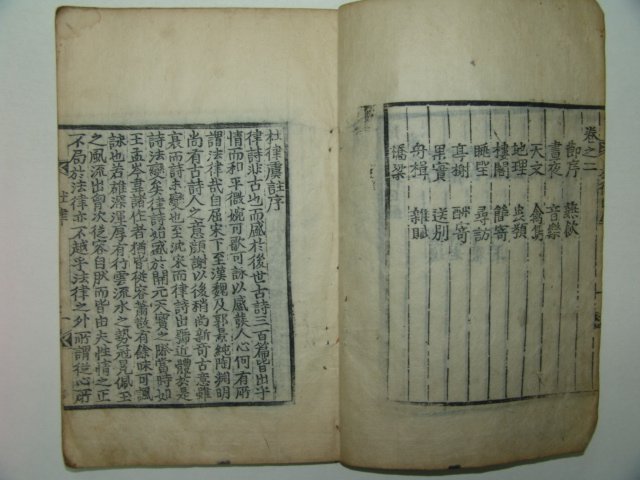 卷之二
節序 燕飲
晝夜 音樂
天文 禽獸
地理 虫類
樓閣 簡寄
眺望 尋訪
亭榭 酬寄
果實 送別
舟楫 雜賦
橋梁
杜律虞註序
律詩非古也而盛於後世古詩三百篇皆出乎
情而和平微婉可歌可詠以感發人心何有所
謂法律哉自屈宋下至漢魏及郭景純陶淵明
尚有古詩人之意顔謝以後稍尚新奇古意雖
衰而詩未變也至沈宋而律詩出號近體於是
詩法變矣律詩始盛於開元天寶之際當時如
王孟岑韋諸作者猶皆從容蕭散有餘味可諷
詠也若雄深渾厚有行雲流水之勢冠冕佩玉
之風流出胷次從容自然而皆由夫性情之正
不局於法律亦不越乎法律之外所謂從心所
杜律